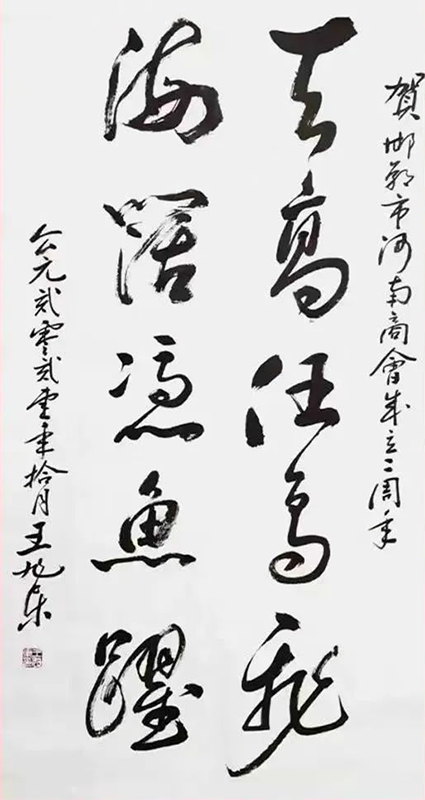 賀邯鄲市河南商會成立二周年
天高任鳥飛
海闊憑魚躍
公元貳零貳壹年拾月王旭東